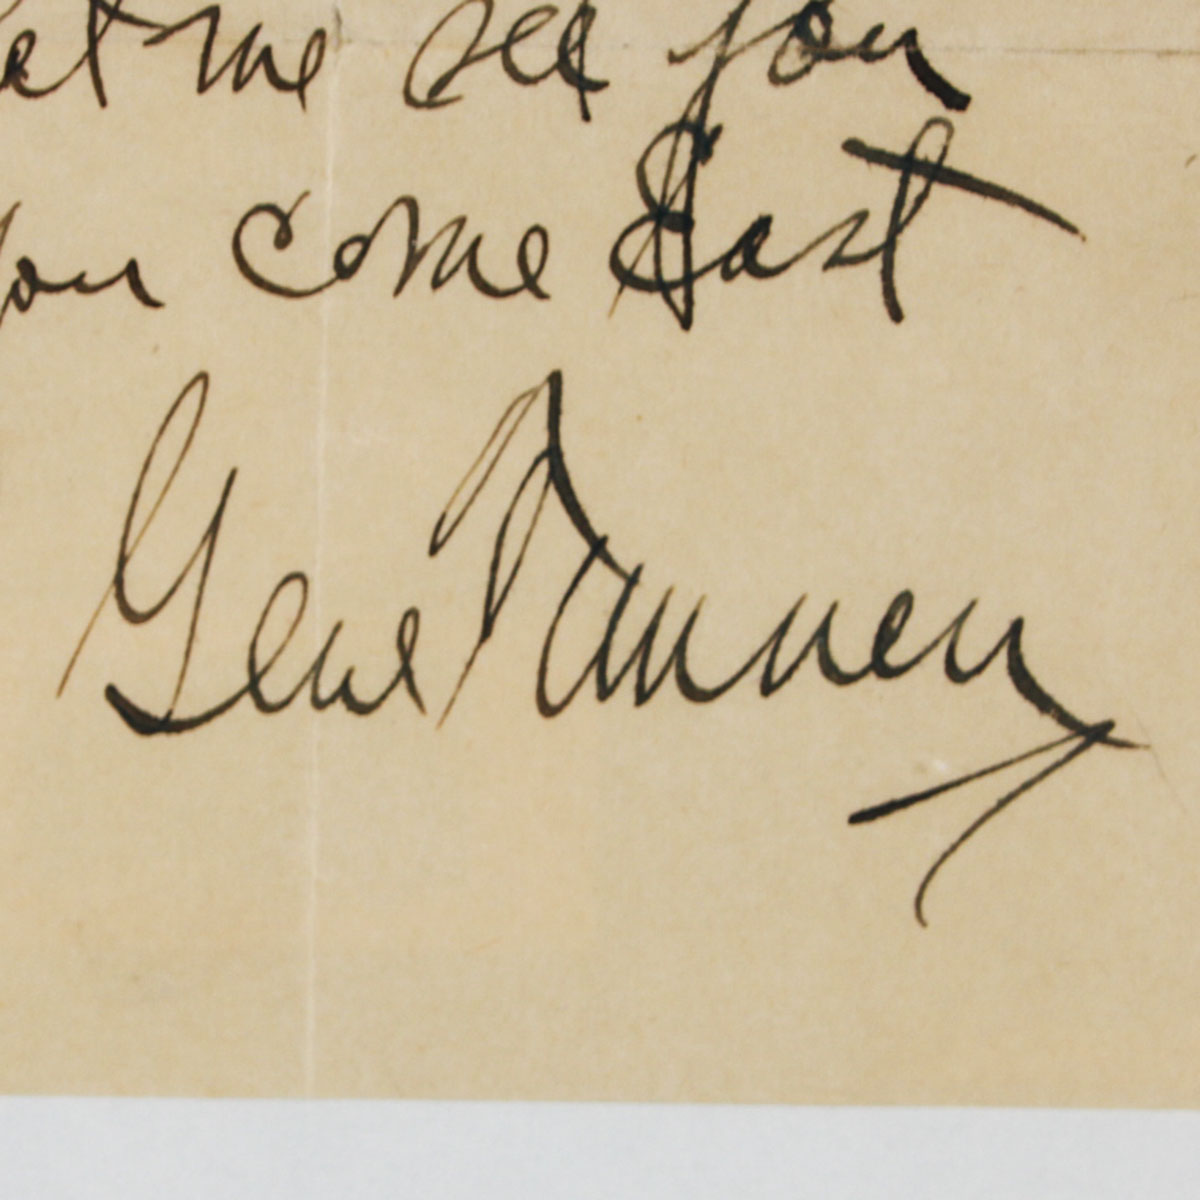 let me see you
you come East
Gene Tunney